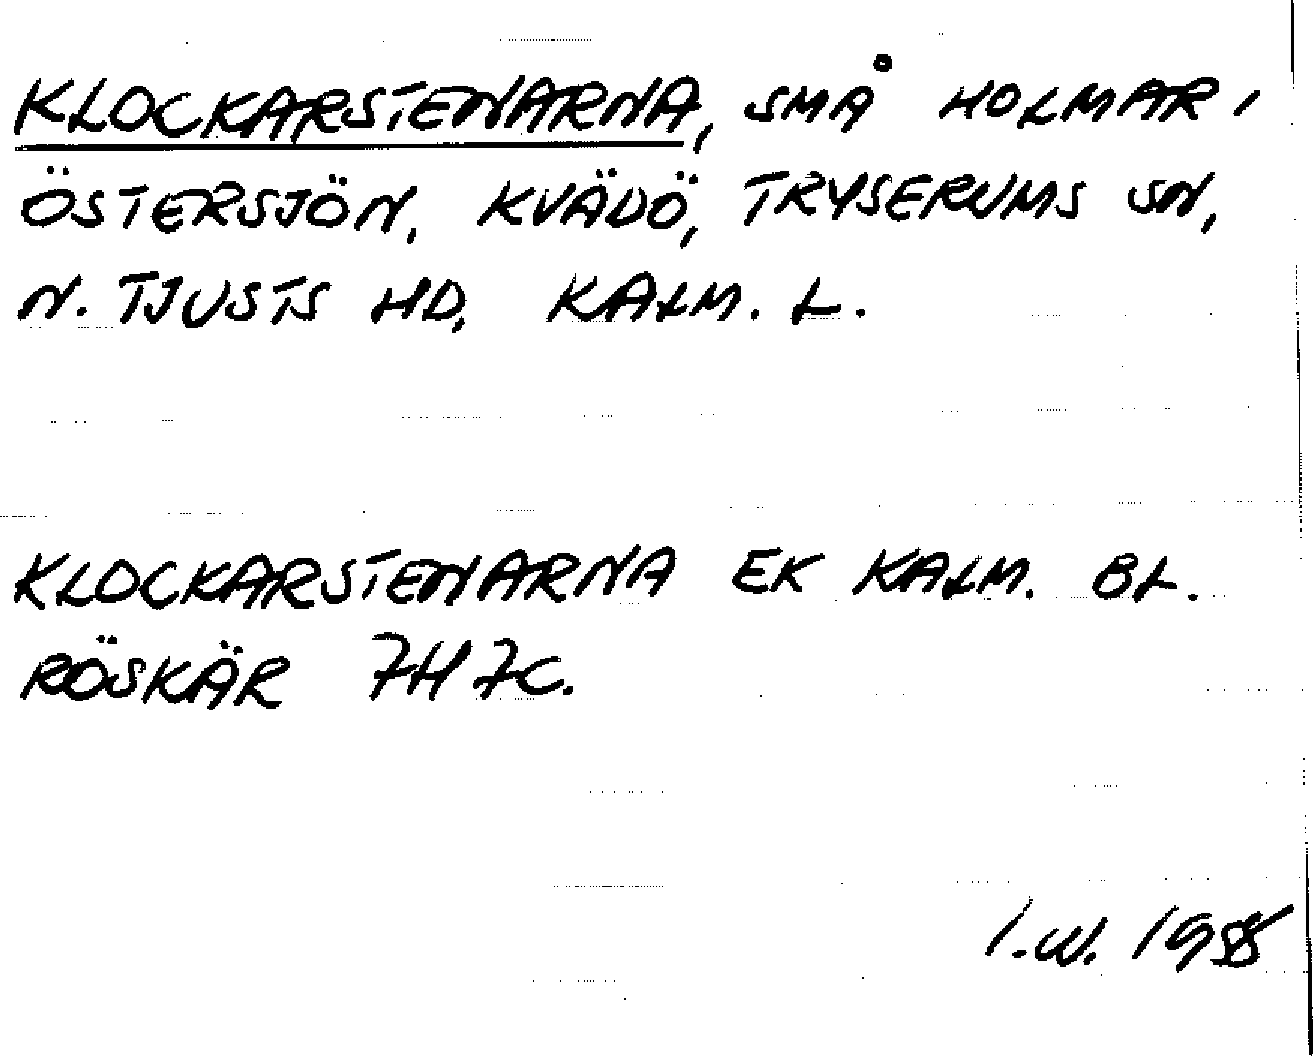 KLOCKARSTENARNA, SMÅ HOLMAR I
ÖSTERSJÖN, KVÄDÖ, TRYSERUMS SN,
N. TJUSTS HD, KALM. L.
KLOCKARSTENARNA EK KALM. BL.
RÖSKÄR 7H 7C.
I.W.